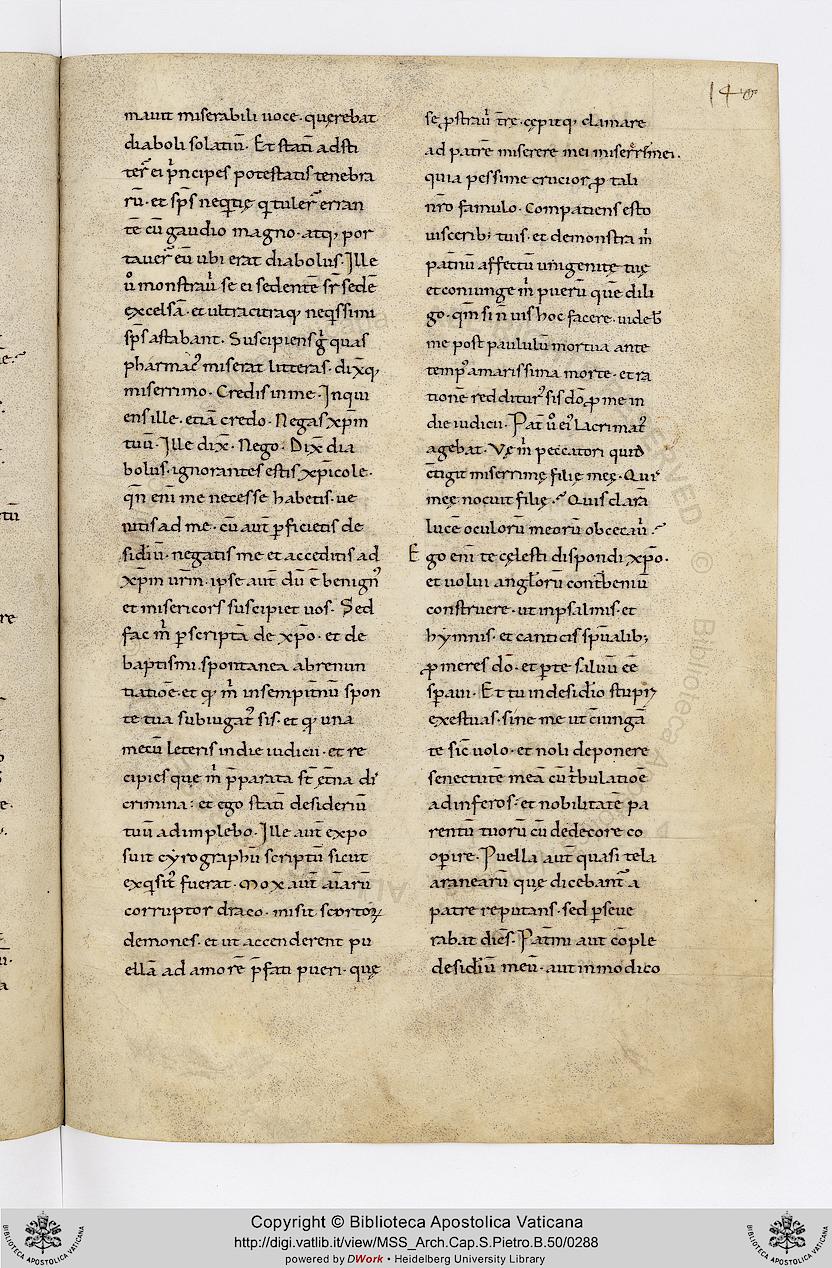 140
mauit miserabili uoce· querebat
diaboli solatiū· Et statī adsti
ter̄ ei p̄ncipes potestatis tenebra
rū· et sp̄s neq̄tię q̄ tuler̄ erran
tē cū gaudio magno· atq; por
tauer̄ eū ubi erat diabolus· Ille
ů monstrau̅ se ei sedentē sr̄ sedē
excelsā· et ultra citraq; neq̄ssimi
sp̄s astabant· Suscipiens g̊ quas
pharmac᾽ miserat litteras· dixq;
miserrimo· Credis in me· Inqui
ens ille· etiā credo· Negas xp̄m
tuū· Ille dix̄· Nego· Dix̄ dia
bolus· ignorantes estis xp̄icole·
qn̄ eni me necesse habetis· ue
nitis ad me· cū aut̄ p̄ficietis de
sidiū· negatis me et acceditis ad
xp̄m ur̄m· ipse aut̄ dū ē benign᾽
et misericors suscipiet uos· Sed
fac m̄ p̱scriptā de xp̄o· et de
baptismi· spontanea abrenun
tiatiōe· et q̄ m̄ in sempit̄nū spon
te tua subiugat᾽ sis· et q̄ una
mecū leteris in die iudicii· et re
cipies que m̄ p̄parata st̄ ęt̄na di
crimina: et ego statī desideriū
tuū adimplebo· Ille aut̄ expo
suit cyrographū scriptū sicut
exq̄sit᾽ fuerat· Mox aut̄ aīarū
corruptor draco· misit scortoꝝ
demones· et ut accenderent pu
ellā ad amorē p̄fati pueri· quę
se p̱strau̅ t̄re· cępitq; clamare
ad patrē miserere mei miserr̄ mei·
quia pessime crucior ꝓ tali
nr̄o famulo· Compatiens esto
uiscerib; tuis· et demonstra m̄
pat̄nū affectū unigenitę tuę
et coniunge m̄ puerū quē dili
go· qm̄ si n̄ uis hoc facere· uideb̄
me post paululū mortua ante
temp᾽ amarissima morte· et ra
tionē redditur᾽ sis dō ꝓ me in
die iudicii· Pat̄ ů ei᾽ lacrimat᾽
agebat· Vę m̄ peccatori quid
c̄tigit miserrimę filię meę· Quis
meę nocuit filię? Quis clarā
lucē oculorū meorū obcecau̅?
Ego eni te cęlesti dispondi xp̄o·
et uolui angl̄orū cont̄beniū
construere· ut in psalmis· et
hymnis· et canticis sp̄ualib;
ꝓmeres dō· et p̱ te saluū eē
sp̱aui· Et tu in desidio stupri
exestuas· sine me ut c̄iungā
te sic̄ uolo· et noli deponere
senectutē meā cū t̄bulatiōe
ad inferos· et nobilitatē pa
rentū tuorū cū dedecore co
op̱ire· Puella aut̄ quasi tela
aranearū quę dicebant᾽ a
patre reputans· sed p̱seue
rabat dices· Pat̄ mi aut cōple
desidiū meū· aut in modico
Copyright © Biblioteca Apostolica Vaticana
http://digi.vatlib.it/view/MSS_Arch.Cap.S.Pietro.B.50/0288
powered by DWork • Heidelberg University Library